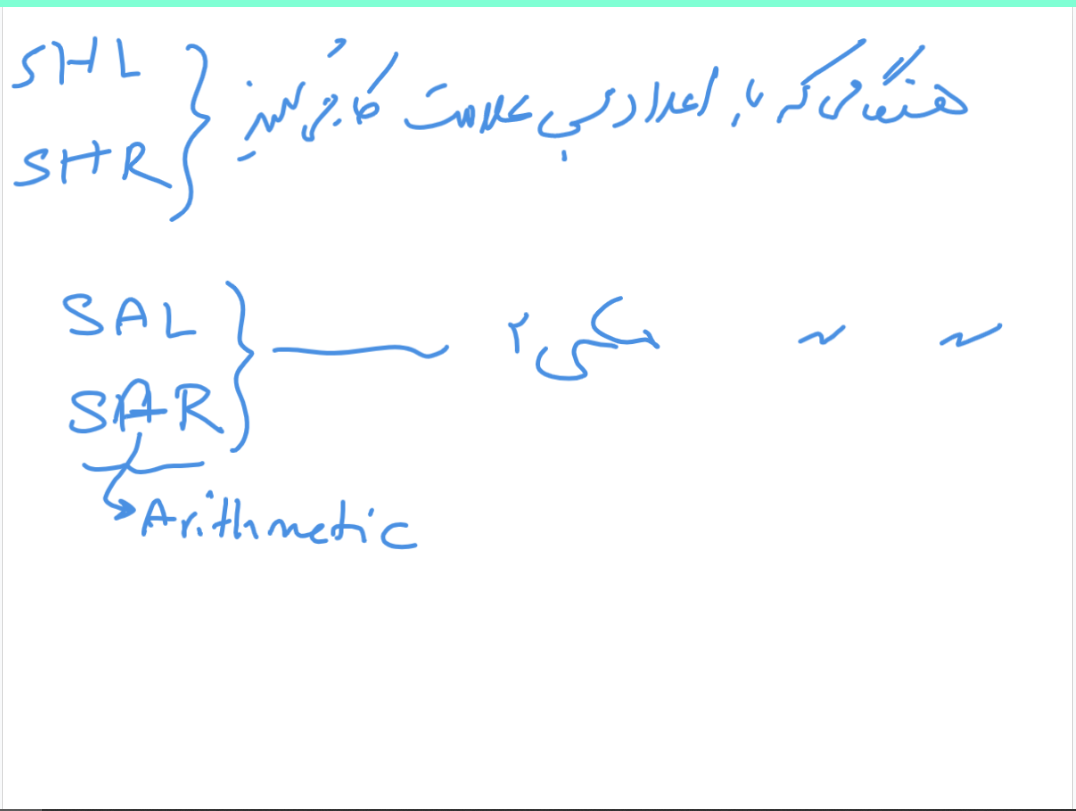 SHL
SHR } هنگامی که با اعداد بی علامت کار می کنیز
SAL
SAR } مکمل ۲ ~ ~
Arithmetic